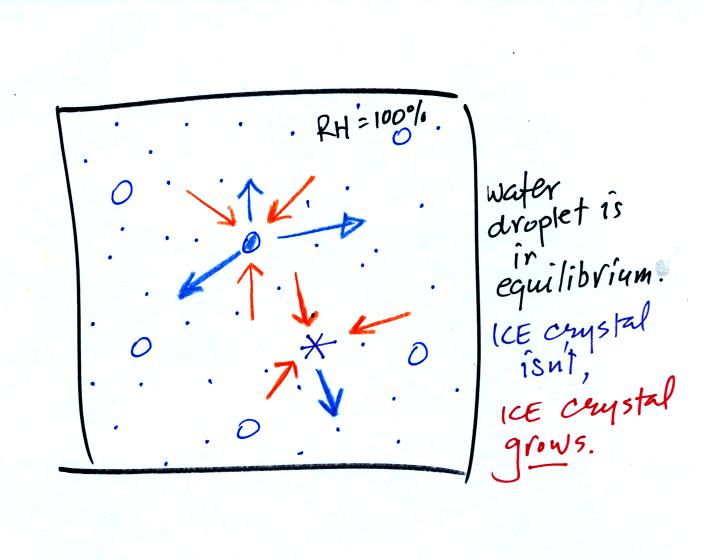 RH = 100%
water
droplet is
in
equilibrium.
ICE crystal
isn't,
ICE crystal
grows.